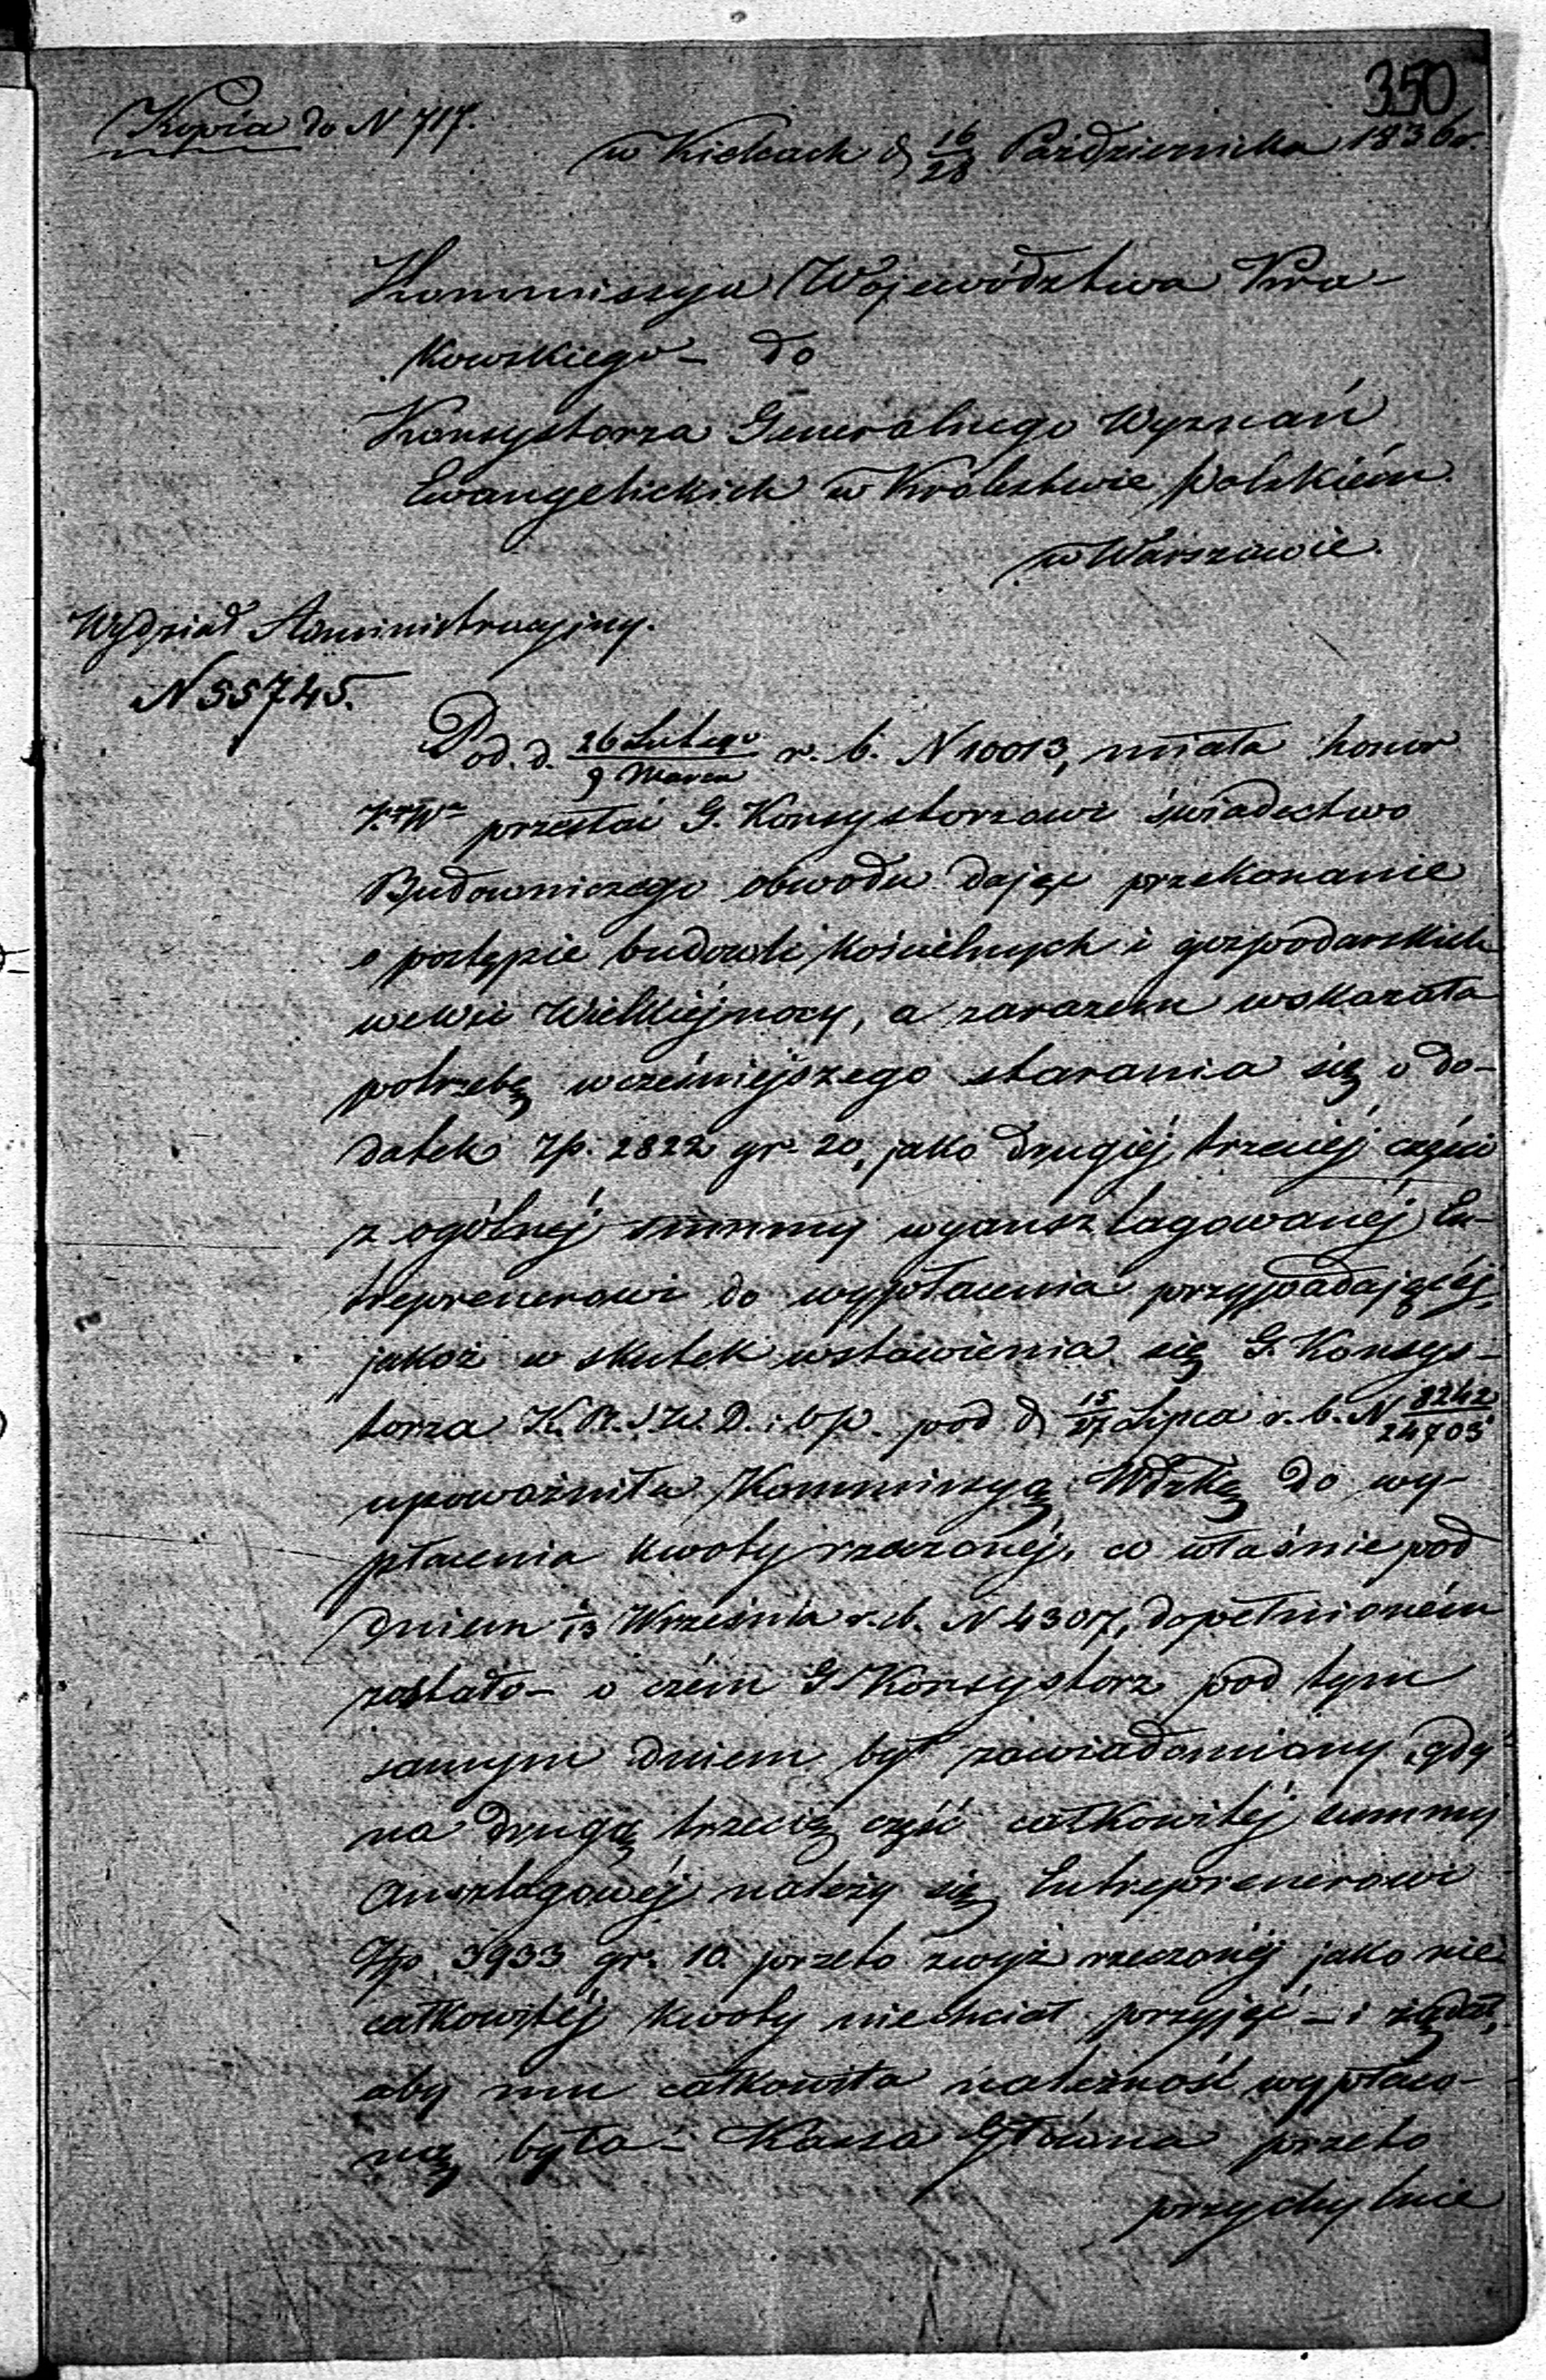 350
Kopia do N 717.
w Kielcach d 16/28 Października 1836 r.
Kommissya Województwa Kra-
kowskiego - do
Konsystorza Generalnego Wyznań
Ewangelickich w Królestwie Polskiém
w Warszawie.
Wydział Administracyjny.
N 55745.
Pod. d. 26 Lutego/9 Marca r. b. N 10013, miała honor
K. Wa przesłać G. Konsystorzowi świadectwo
Budowniczego obwodu dając przekonanie
o postępie budowli kościelnych i gospodarskich
we wsi Wielkiéjnocy, a zarazem wskazała
potrzebę wcześniejszego starania się o do-
datek Zp. 2822 gr. 20, jako drugiéj trzeciéj części
z ogólnéj summy wyanszlagowanéj En-
treprenerowi do wypłacenia przypadającéj,
jakoż w skutek wstawienia się G. Konsys-
torza K. R. S. W. D. i O. p. pod d 15/27 Lipca r. b. N 8242/24703
upoważniła Kommissyą Wdzką do wy-
płacenia kwoty rzeczonéj, co właśnie pod
dniem 1/13 Września r. b. N 43017, dopełnioném
zostało - o czém G Konsystorz pod tym
samym dniem był zawiadomiony gdy
na drugą trzecią część całkowitéj summy
Anszlagowéj należy się Entreprenerowi
Zp 3933 gr. 10. przeto zwyż rzeczonéj jako nie
całkowitéj kwoty niechciał przyjąć - i żądał,
aby mu całkowita należność wypłaco-
ną była - Kassa Główna przeto
przychylnie